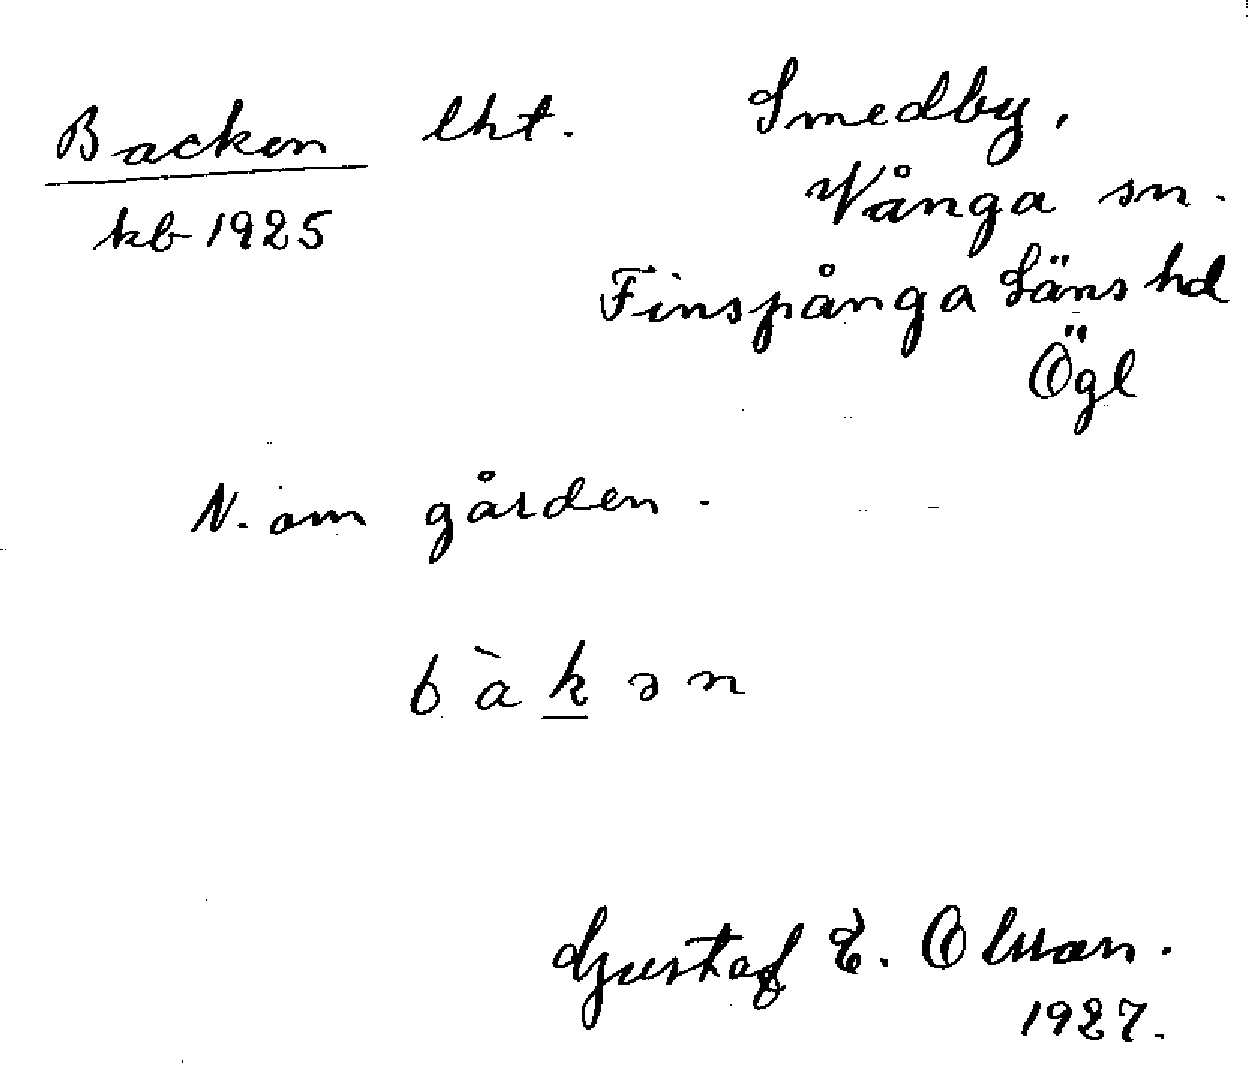 Backen lht. Smedby,
kb 1925 Vånga sn.
Finspånga Läns hd
Ögl
N. om gården.
bàkən
Gustaf E. Olsson.
1927.